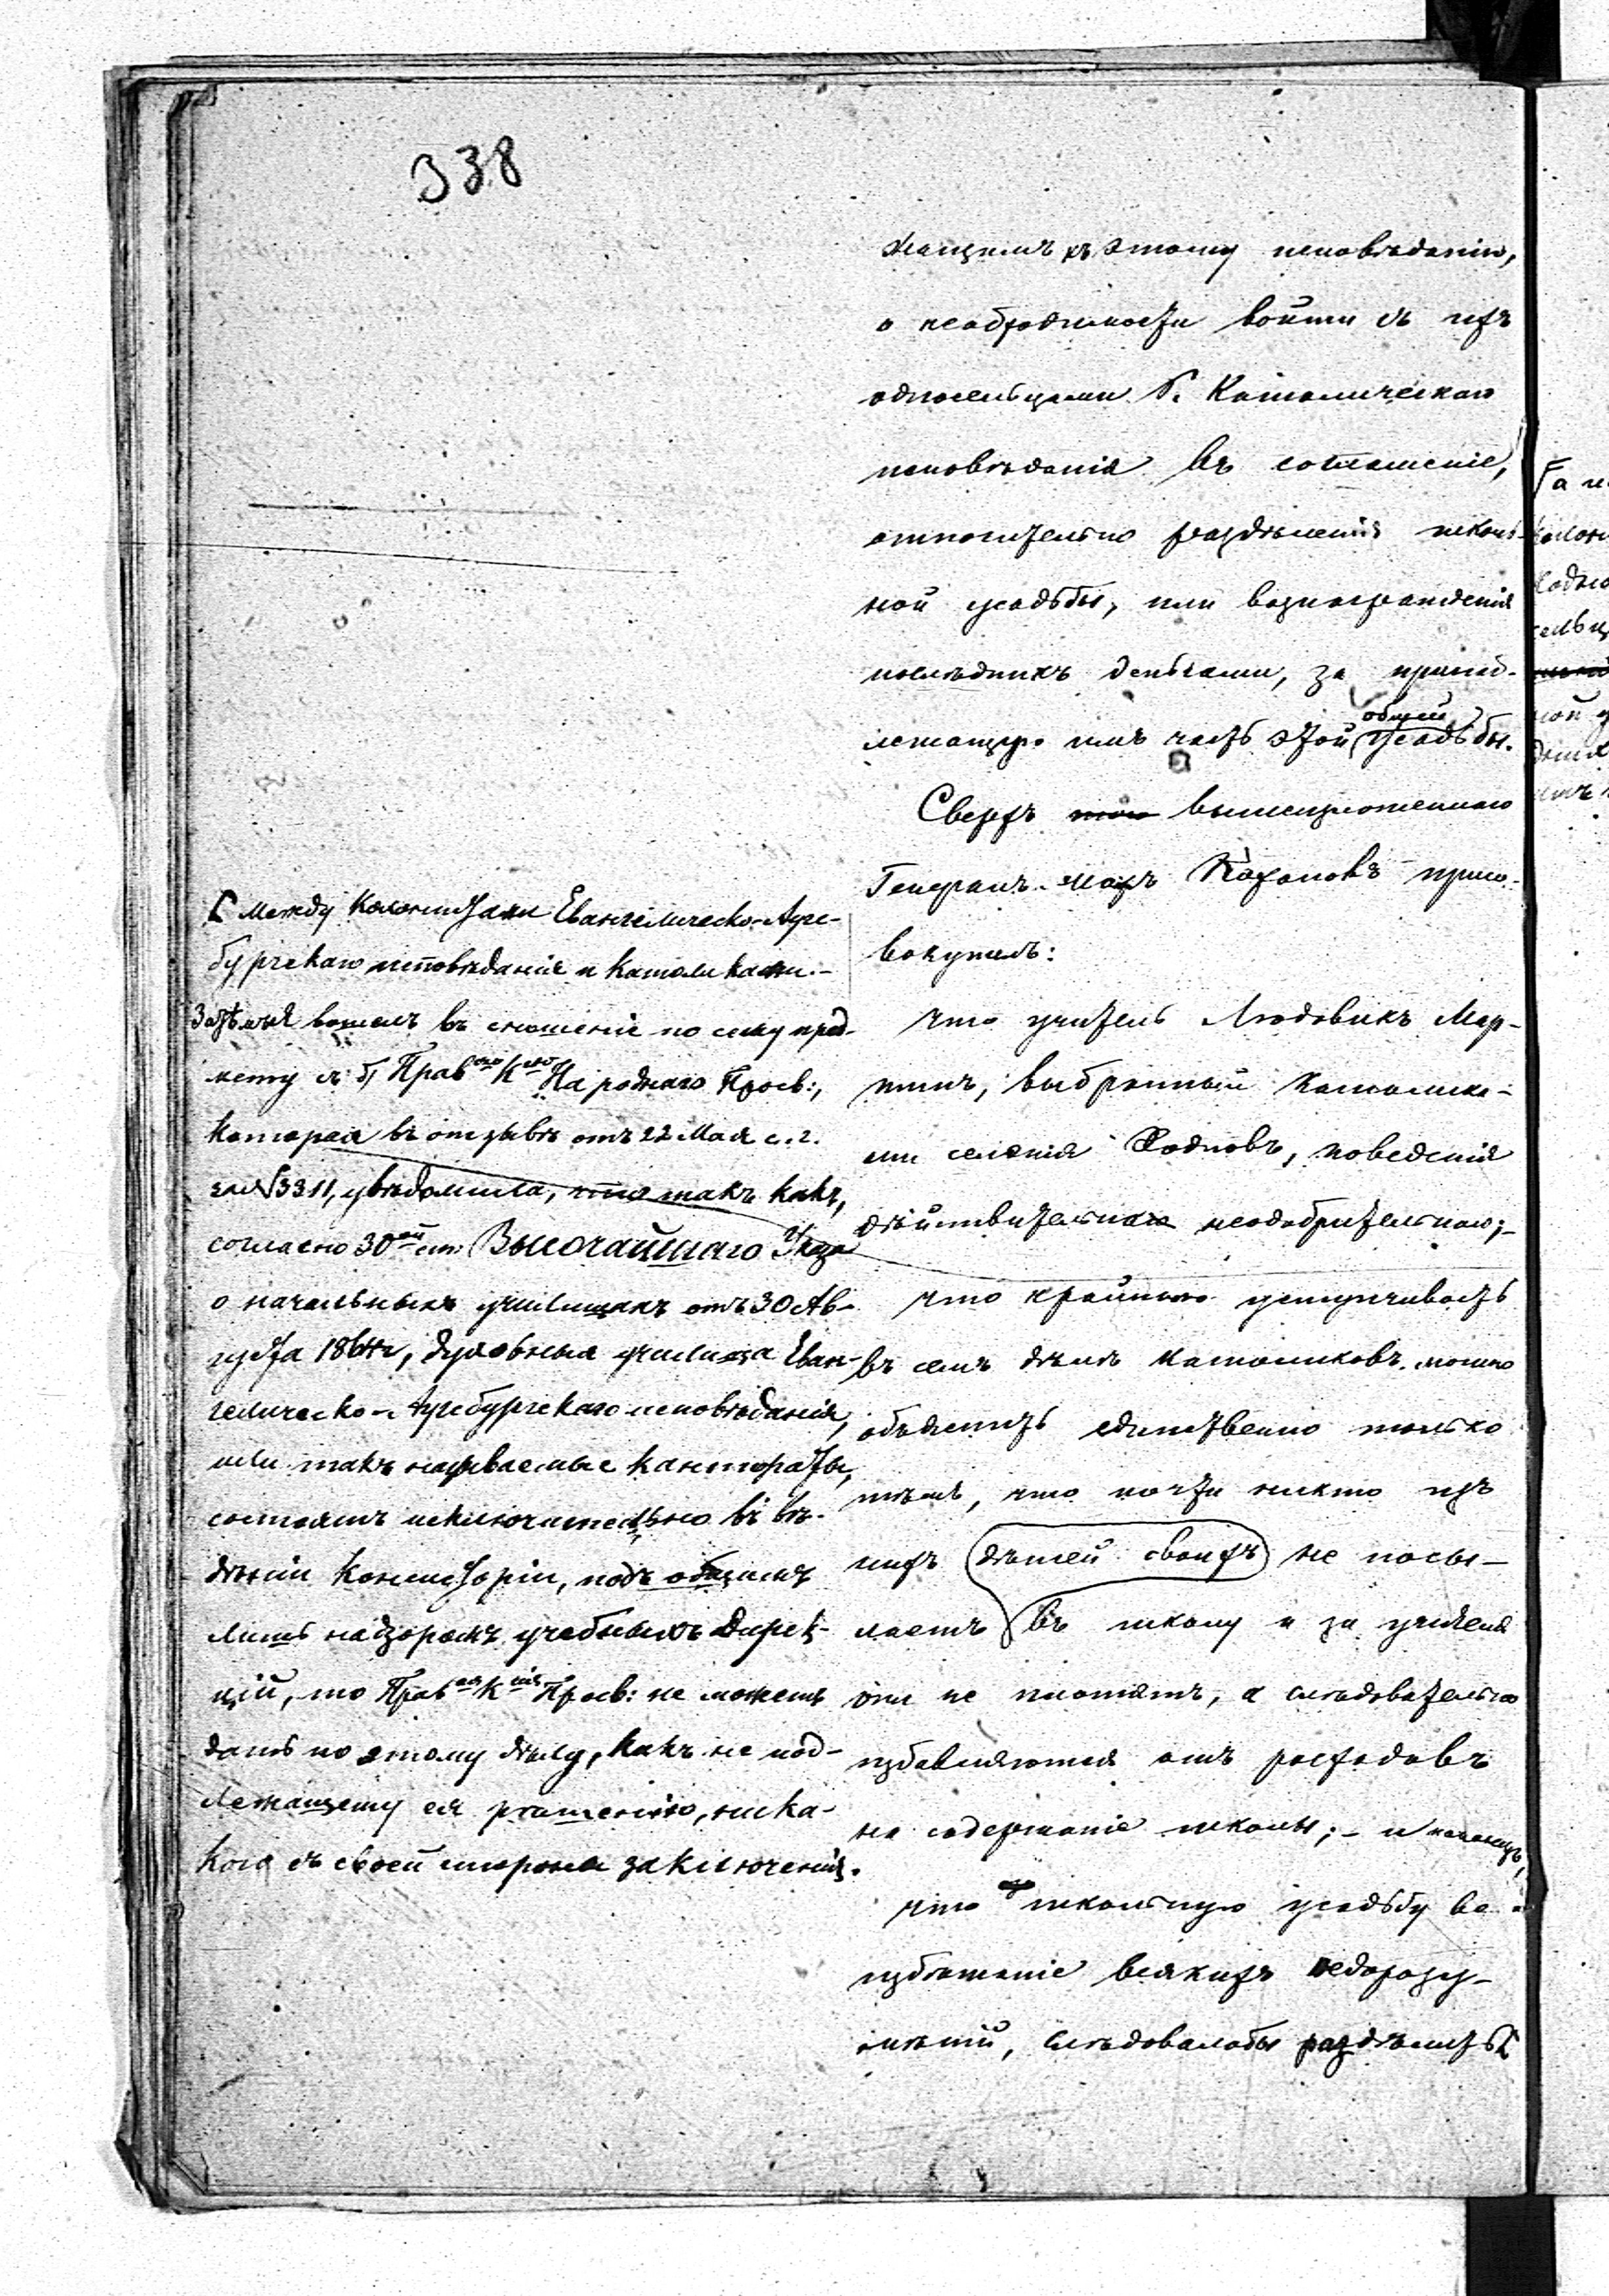 338
жащимъ къ этому исповѣданію,
о необходимости войти съ ихъ
односельцами Р. Католическаго
исповѣданія въ соглашеніе,
относительно раздѣленія школь-
ной усадьбы, или вознагражденія
послѣднихъ деньгами, за принад-
лежащую имъ часть этой общей усадьбы.
Сверхъ того вышеизложеннаго
Генералъ-Маіоръ Кохановъ присо-
вокупилъ:
что учитель Людовикъ Мар-
тинъ, выбранный католика-
ми селенія Ходновъ, поведенія
дѣйствительно неодобрительнаго;-
что крайнюю уступчивость
въ семъ дѣлѣ католиковъ можно
объяснить единственно только
тѣмъ, что почти никто изъ
нихъ дѣтей своихъ не посы-
лаетъ въ школу и за ученія
они не платятъ, а слѣдовательно
избавляются отъ расходовъ
на содержаніе школы;- и наконецъ,
что школьную усадьбу во
избѣжаніе всякихъ недоразу-
мѣній, слѣдовалобы раздѣлить
между колонистами Евангелическо-Аугс-
бургскаго исповѣданія и католиками.-
Затѣмъ я вошелъ въ сношеніе по сему пред-
мету съ б. Прав ою К ею Народнаго Просв:,
которая въ отзывѣ отъ 22 Мая с.г.
за № 3311, увѣдомила, что такъ какъ,
согласно 30 ой ст: Высочайшаго Указа
о начальныхъ училищахъ отъ 30 Ав-
густа 1864 г, духовныя училища Еван-
гелическо-Аугсбургскаго исповѣданія,
или такъ называемые кантораты,
состоятъ исключительно въ вѣ-
дѣніи Консисторіи, подъ общимъ
лишь надзоромъ учебныхъ Дирек-
цій, то Прав ая К сія Просв: не можетъ
дать по этому дѣлу, какъ не под-
лежащему ея рѣшенію, ника-
кого съ своей стороны заключенія.